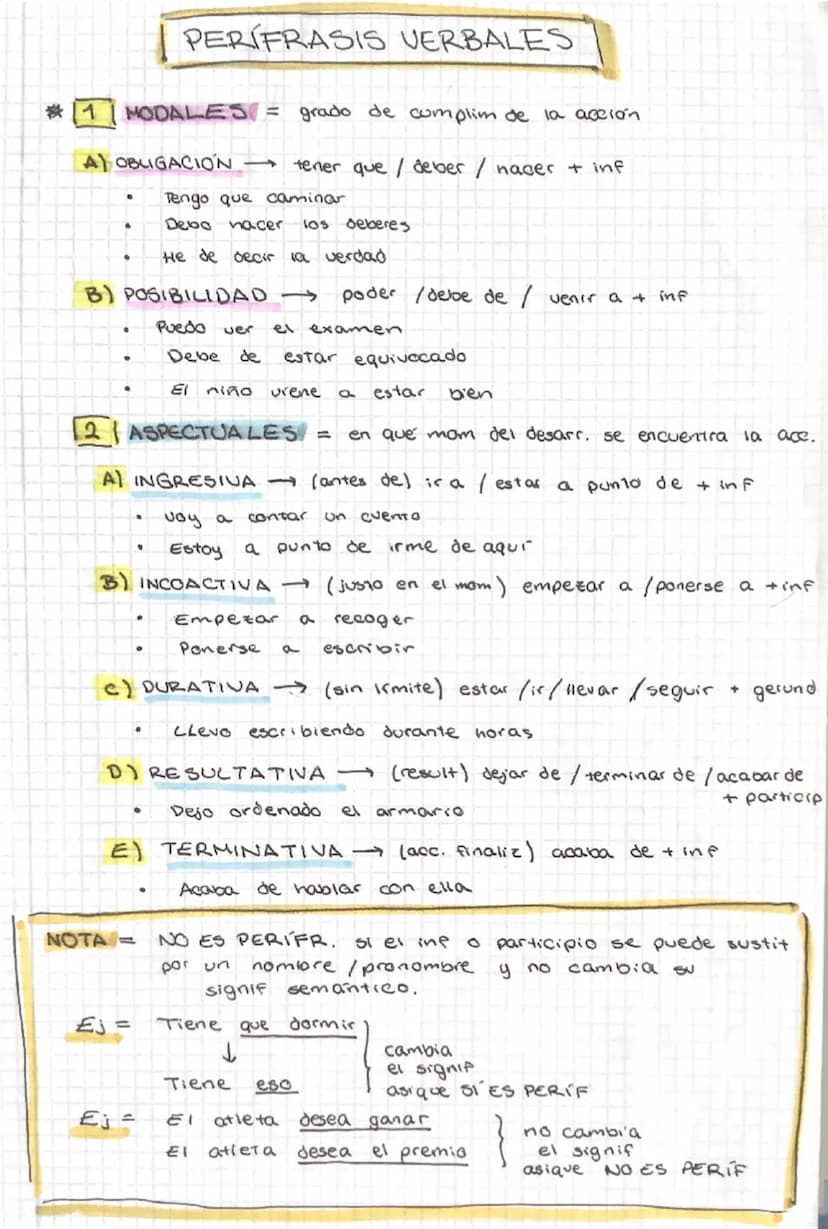 PERÍFRASIS VERBALES
* 1 MODALES = grado de cumplim de la acción
A) OBLIGACIÓN → tener que / deber / hacer + inf
• Tengo que caminar
• Debo hacer los deberes
• He de decir la verdad
B) POSIBILIDAD → poder / debe de / venir a + inf
• Puedo ver el examen
• Debe de estar equivocado
• El niño viene a estar bien
2 ASPECTUALES = en qué mom del desarr. se encuentra la acc.
A) INGRESIVA → (antes de) ir a / estar a punto de + inf
• Voy a contar un cuento
• Estoy a punto de irme de aquí
B) INCOACTIVA → (justo en el mom) empezar a / ponerse a + inf
• Empezar a recoger
• Ponerse a escribir
C) DURATIVA → (sin límite) estar / ir / llevar / seguir + gerund
• Llevo escribiendo durante horas
D) RESULTATIVA → (result) dejar de / terminar de / acabar de
+ particip
• Dejo ordenado el armario
E) TERMINATIVA → (acc. finaliz) acaba de + inf
• Acaba de hablar con ella
NOTA = NO ES PERÍFR. si el inf o participio se puede sustit
por un nombre / pronombre y no cambia su
signif semántico.
Ej = Tiene que dormir
↓
Tiene eso
cambia
el signif
asique SÍ ES PERÍF
Ej = El atleta desea ganar
El atleta desea el premio
no cambia
el signif
asique NO ES PERÍF